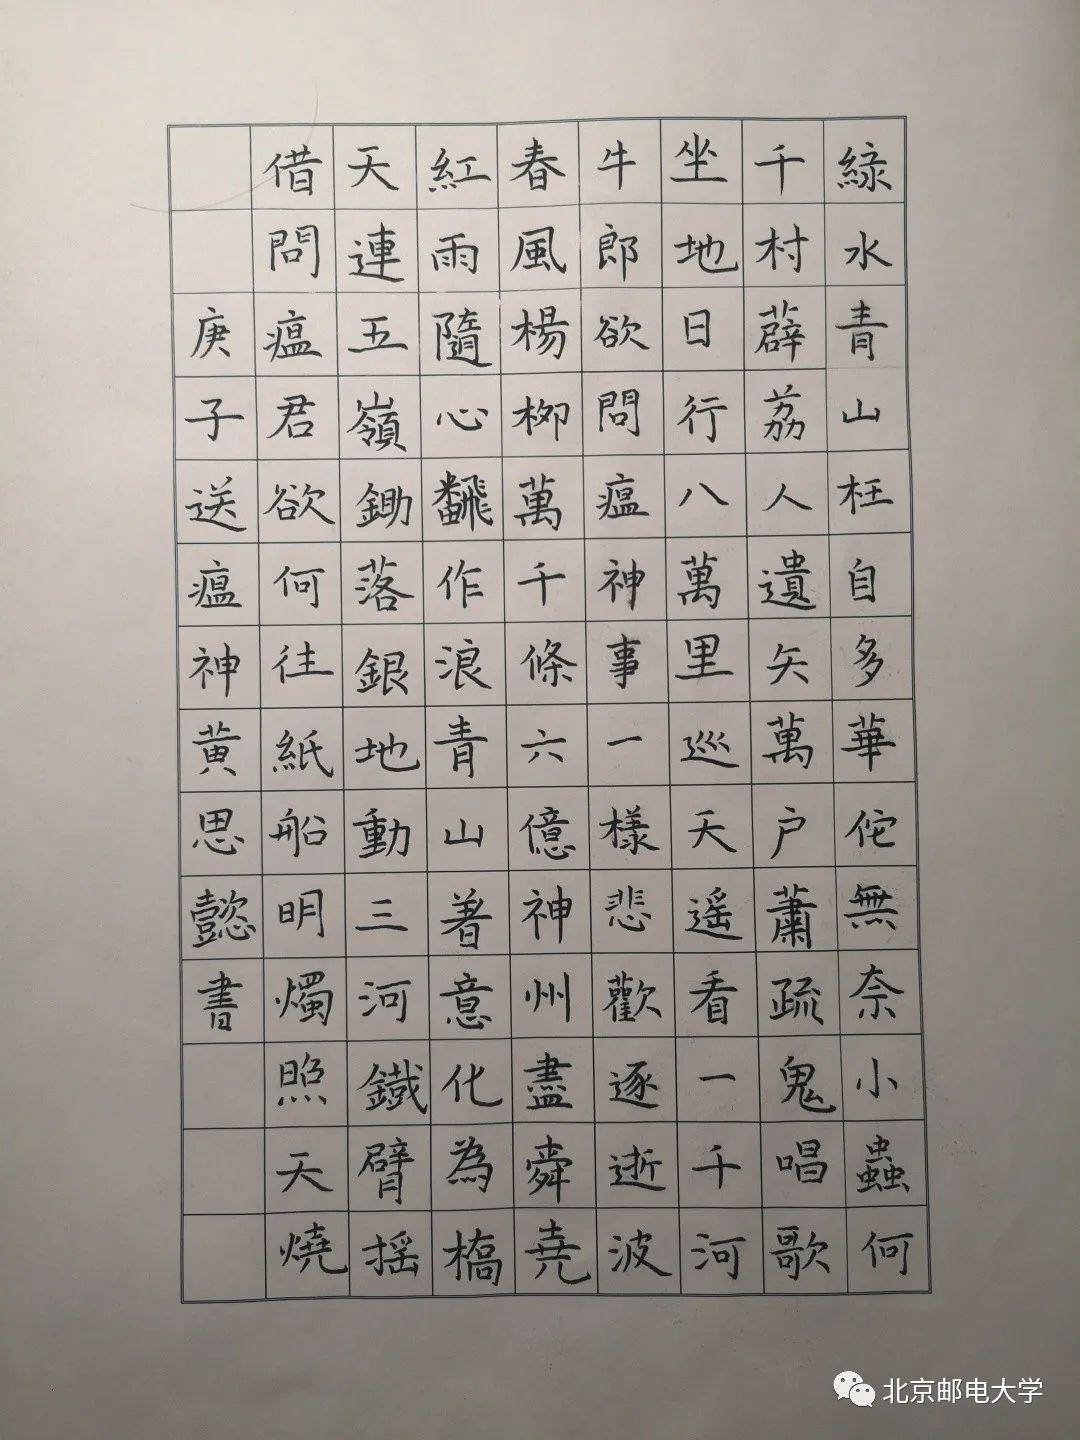 綠水青山枉自多華佗無奈小蟲何
千村薜荔人遺矢萬户蕭疏鬼唱歌
坐地日行八萬里巡天遥看一千河
牛郎欲問瘟神事一樣悲歡逐逝波
春風楊柳萬千條六億神州盡舜堯
紅雨隨心飜作浪青山著意化為橋
天連五嶺鋤落銀地動三河鐵臂摇
借問瘟君欲何往紙船明燭照天燒
庚子送瘟神黄思懿書
北京邮电大学